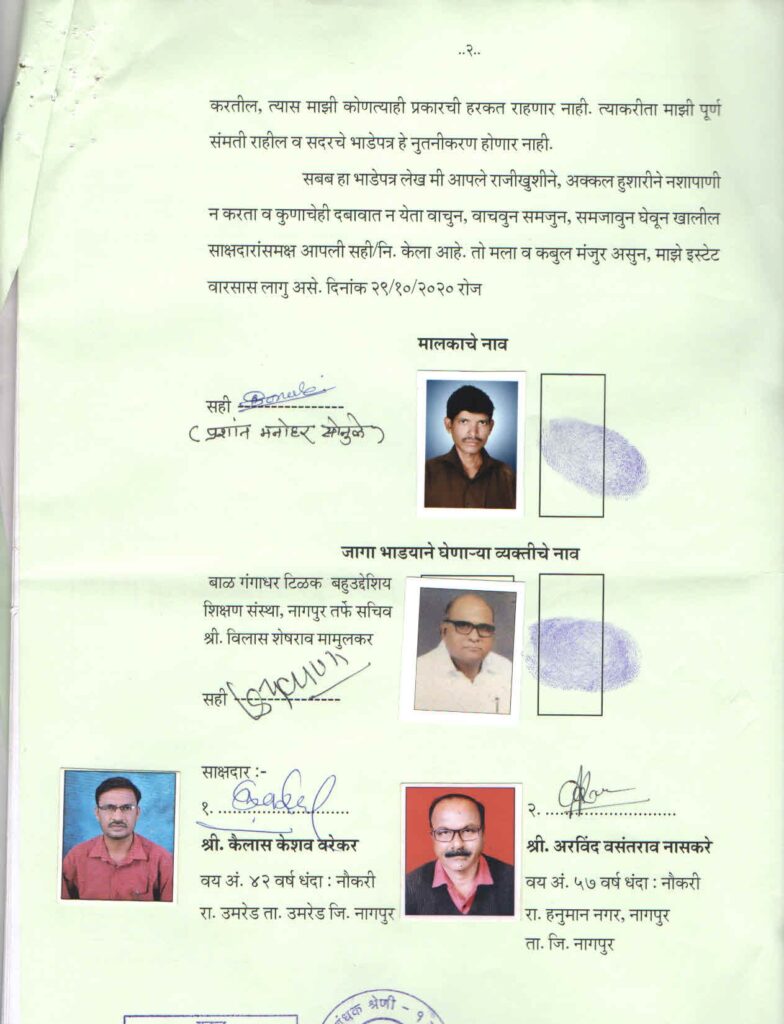 ..२..
करतील, त्यास माझी कोणत्याही प्रकारची हरकत राहणार नाही. त्याकरीता माझी पूर्ण
संमती राहील व सदरचे भाडेपत्र हे नुतनीकरण होणार नाही.
सबब हा भाडेपत्र लेख मी आपले राजीखुशीने, अक्कल हुशारीने नशापाणी
न करता व कुणाचेही दबावात न येता वाचुन, वाचवुन समजुन, समजावुन घेवून खालील
साक्षदारांसमक्ष आपली सही/नि. केला आहे. तो मला व कबुल मंजुर असुन, माझे इस्टेट
वारसास लागु असे. दिनांक २९/१०/२०२० रोज
मालकाचे नाव
सही
(प्रशांत मनोहर सोनुले)
जागा भाडयाने घेणाऱ्या व्यक्तीचे नाव
बाळ गंगाधर टिळक बहुउद्देशिय
शिक्षण संस्था, नागपुर तर्फे सचिव
श्री. विलास शेषराव मामुलकर
सही
साक्षदार :-
१.
श्री. कैलास केशव वरेकर
वय अं. ४२ वर्ष धंदा : नौकरी
रा. उमरेड ता. उमरेड जि. नागपुर
२.
श्री. अरविंद वसंतराव नासकरे
वय अं. ५७ वर्ष धंदा : नौकरी
रा. हनुमान नगर, नागपुर
ता. जि. नागपुर
श्रेणी - १